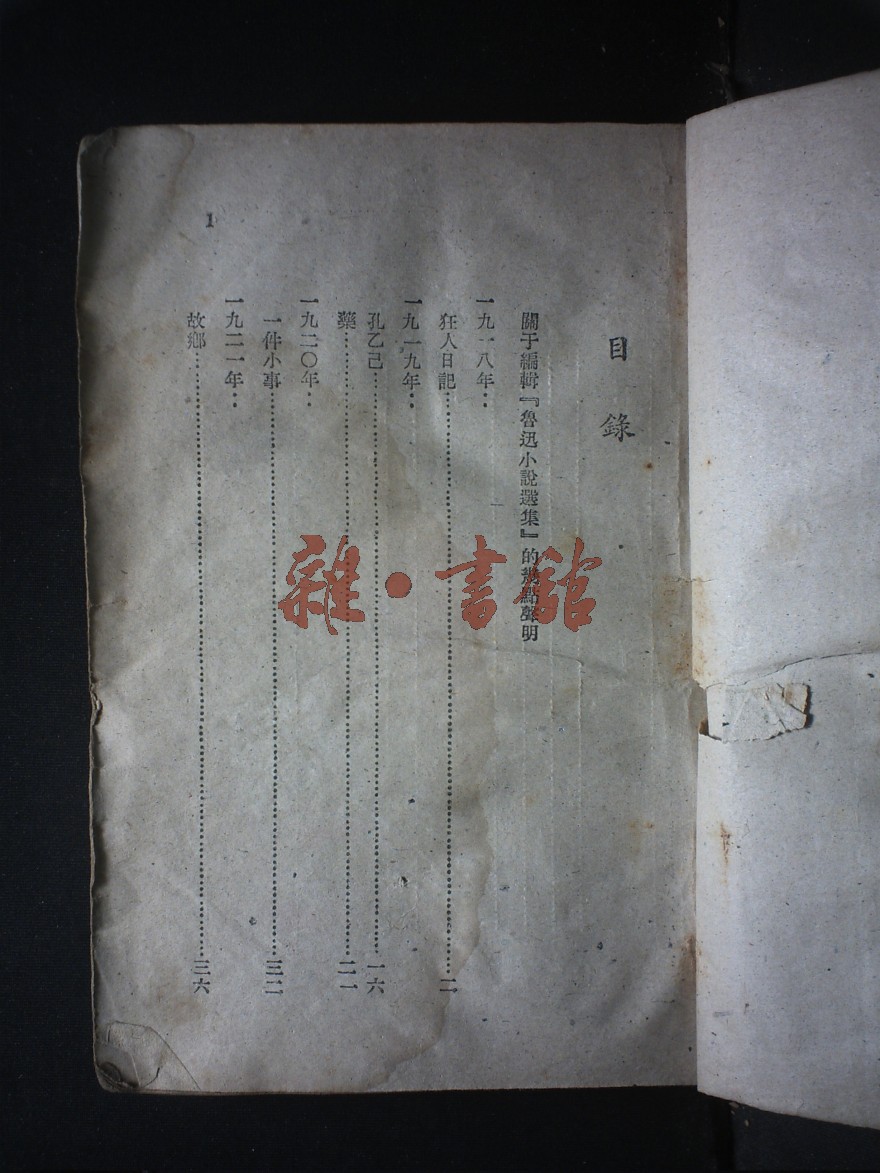 目錄
關于編輯『魯迅小說選集』的幾點聲明
一九一八年：
狂人日記…………二
一九一九年：
孔乙己…………一六
藥…………二一
一九二〇年：
一件小事…………三二
一九二一年：
故鄉…………三六
1
雜·書館